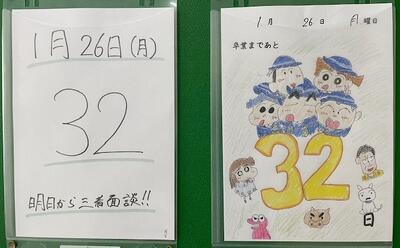 1月26日(月)
32
明日から三者面談!!
1月 26日 月曜日
卒業まであと
32
日